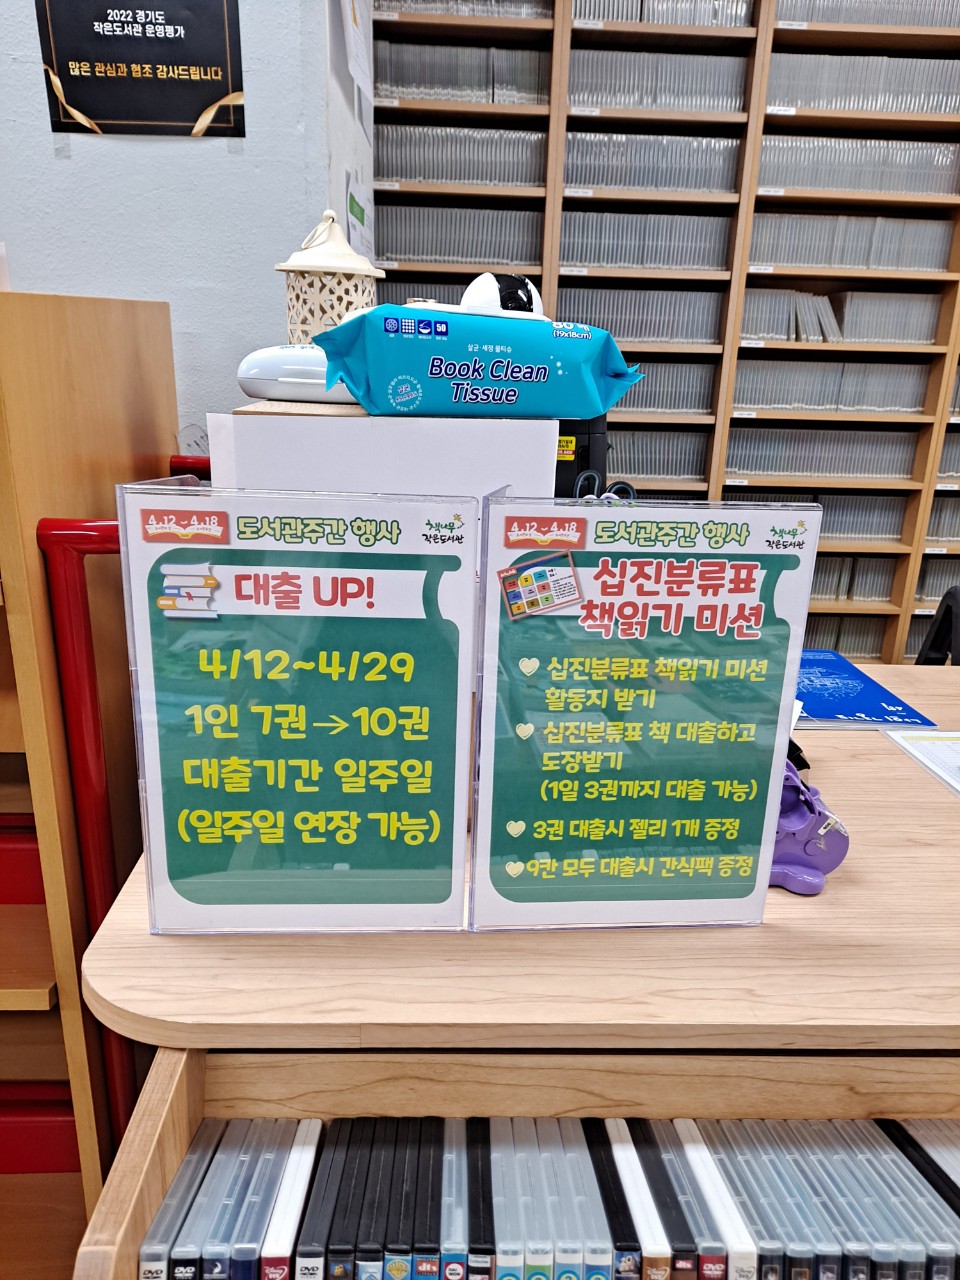 2022 경기도
작은도서관 운영평가
많은 관심과 협조 감사드립니다
50
(19x18cm)
살균·세정 물티슈
Book Clean
Tissue
4.12~4.18
도서관주간 행사
책나무
작은도서관
대출 UP!
4/12~4/29
1인 7권→10권
대출기간 일주일
(일주일 연장 가능)
4.12~4.18
도서관주간 행사
책나무
작은도서관
십진분류표
책읽기 미션
십진분류표 책읽기 미션
활동지 받기
십진분류표 책 대출하고
도장받기
(1일 3권까지 대출 가능)
3권 대출시 젤리 1개 증정
9칸 모두 대출시 간식팩 증정